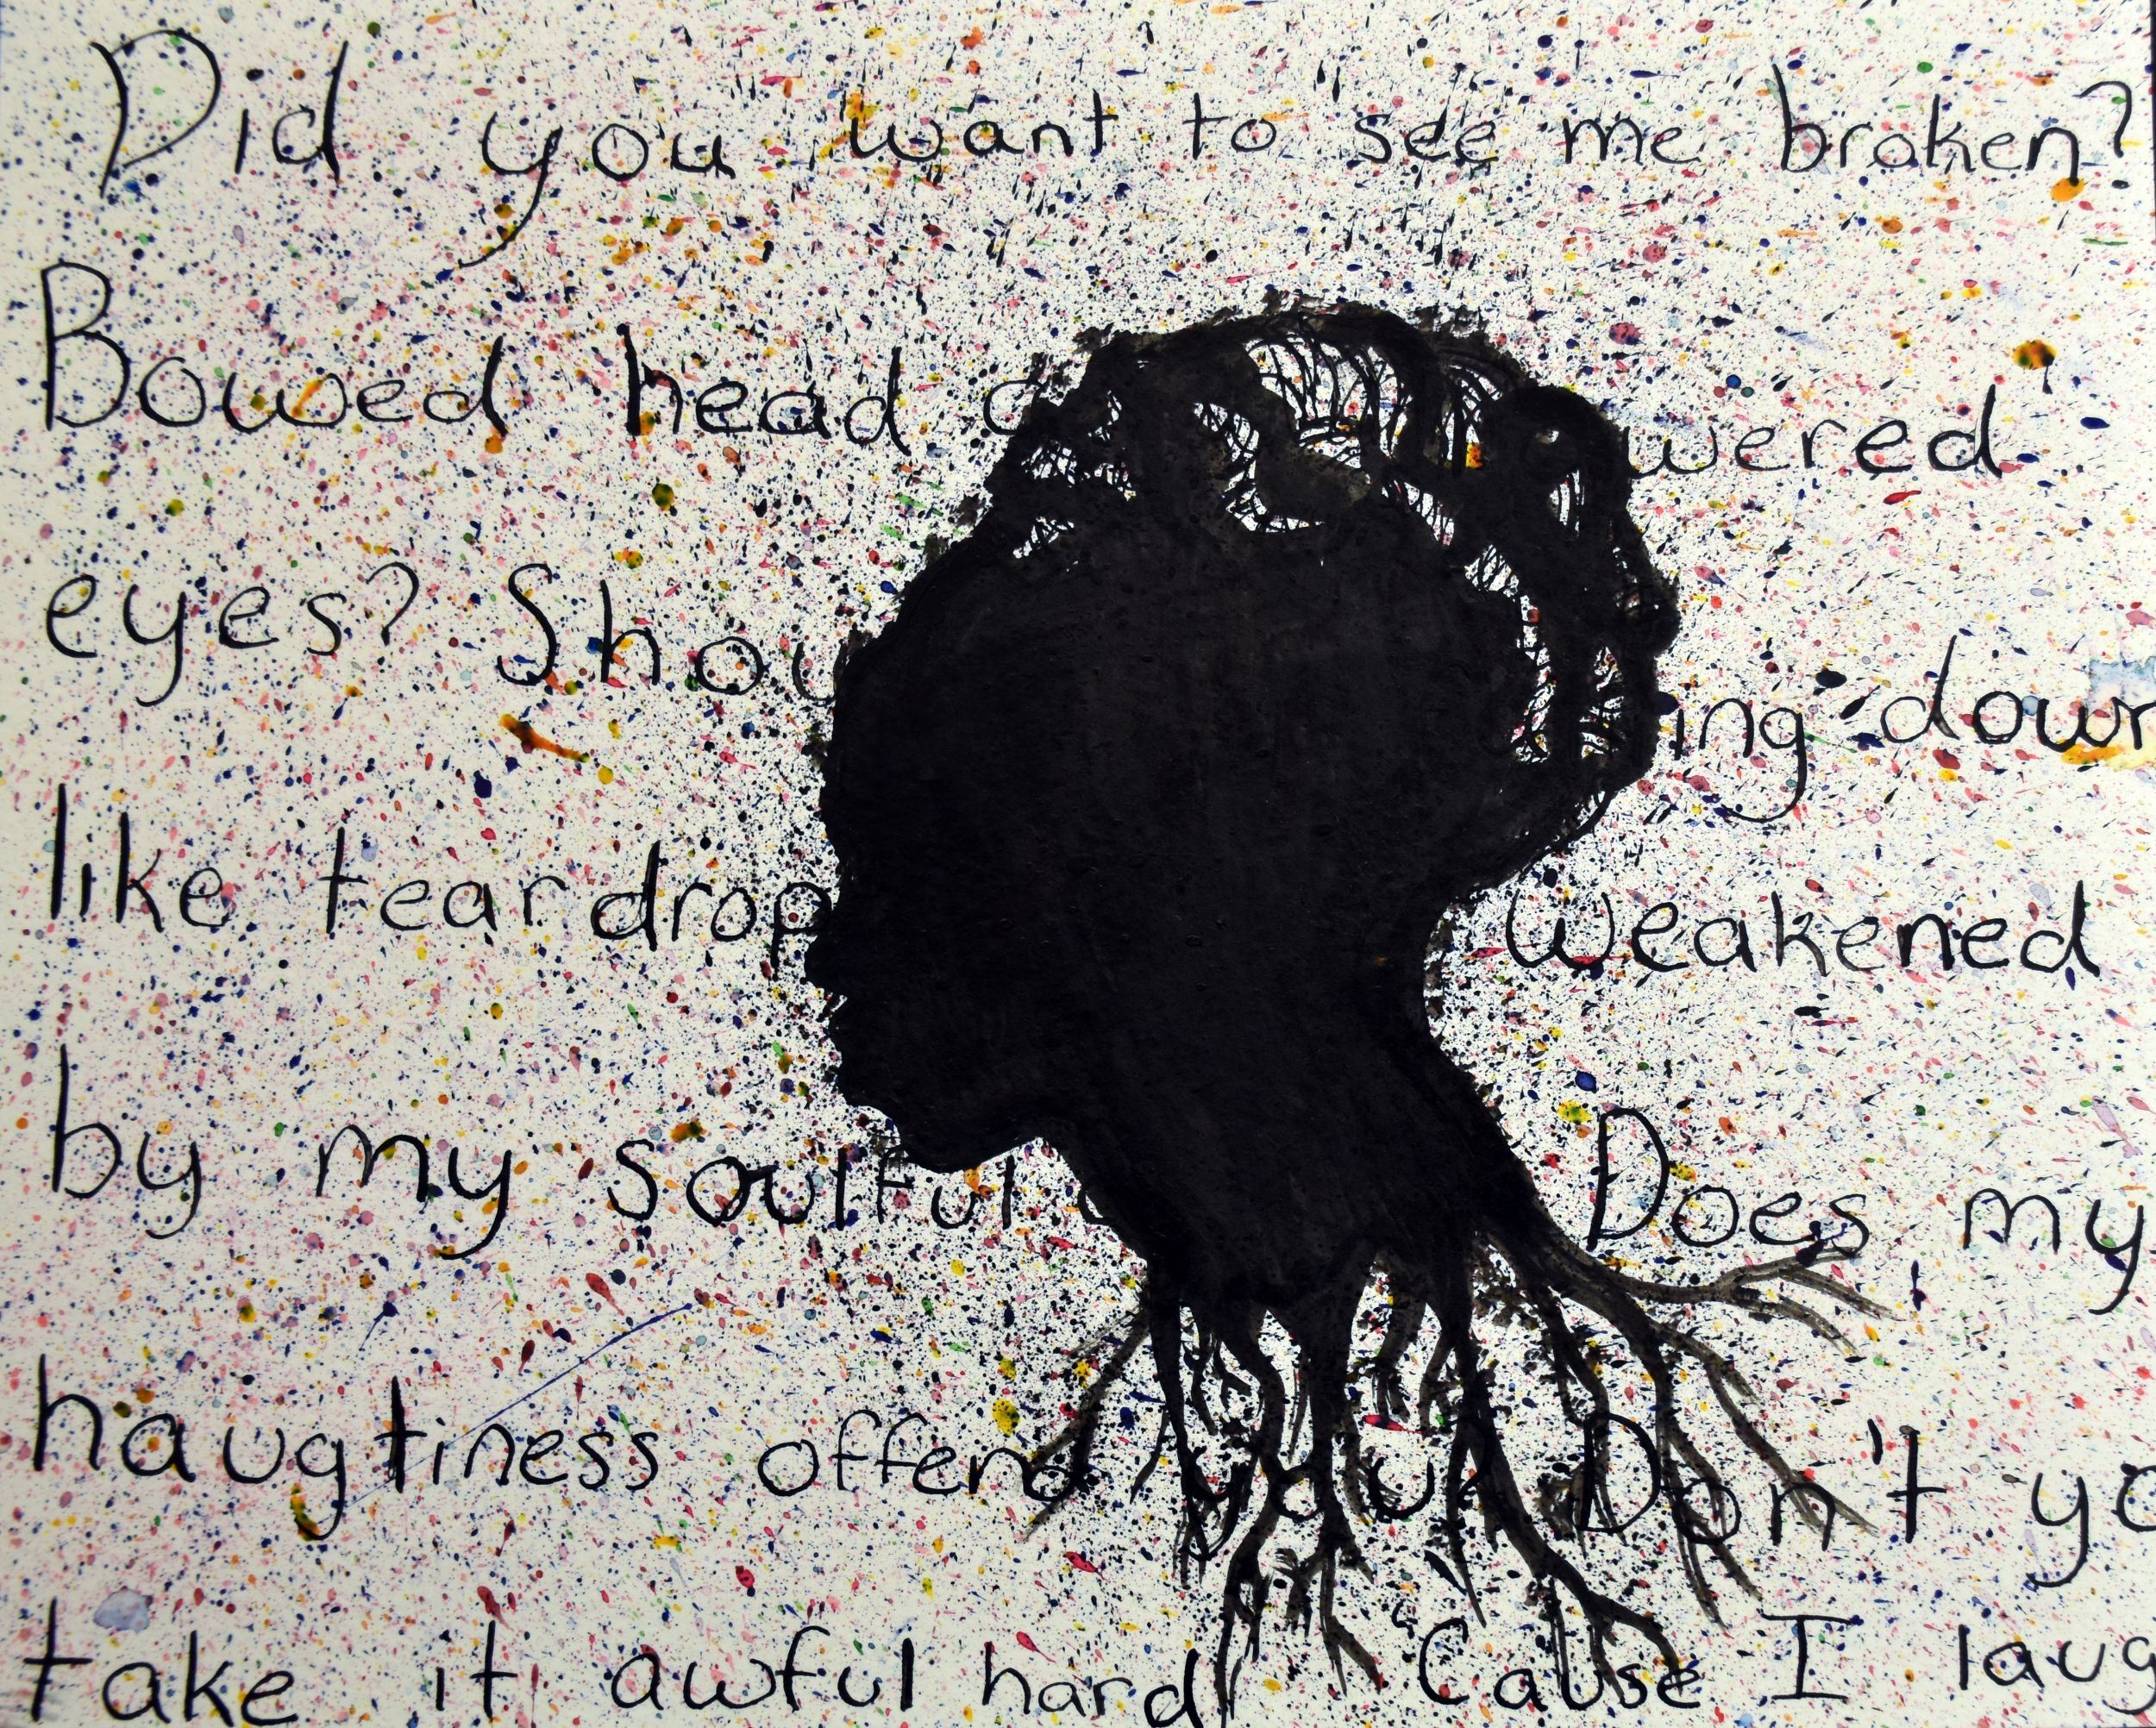 Did you want to see me broken?
Bowed head wered
eyes? Shou ing down
like teardrop weakened
by my soulful Does my
haugtiness offend you Don't yo
take it awful hard 'Cause I laug